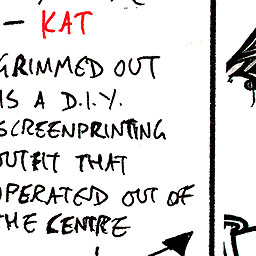 — KAT
GRIMMED OUT
IS A D.I.Y.
SCREENPRINTING
OUTFIT THAT
OPERATED OUT OF
THE CENTRE